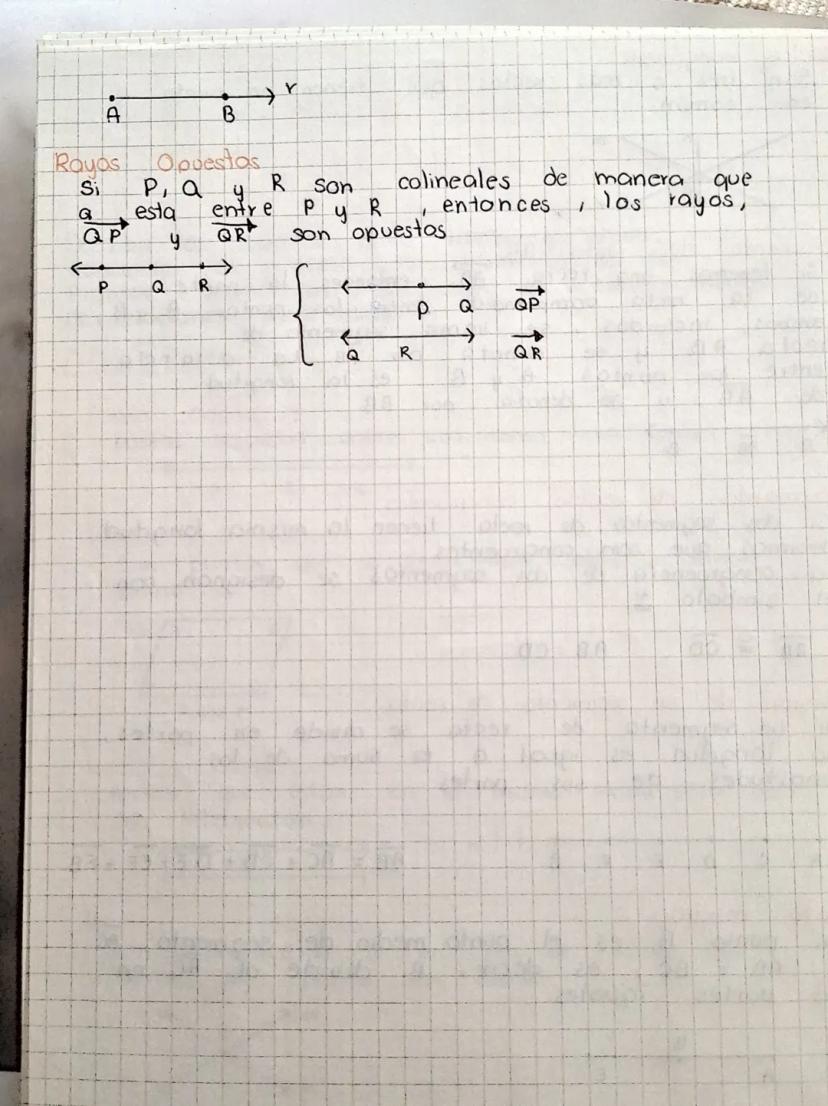 r
A B
Rayos Opuestos
Si P, Q y R son colineales de manera que
Q esta entre P y R , entonces , los rayos,
QP y QR son opuestos
P Q R
P Q QP
Q R QR